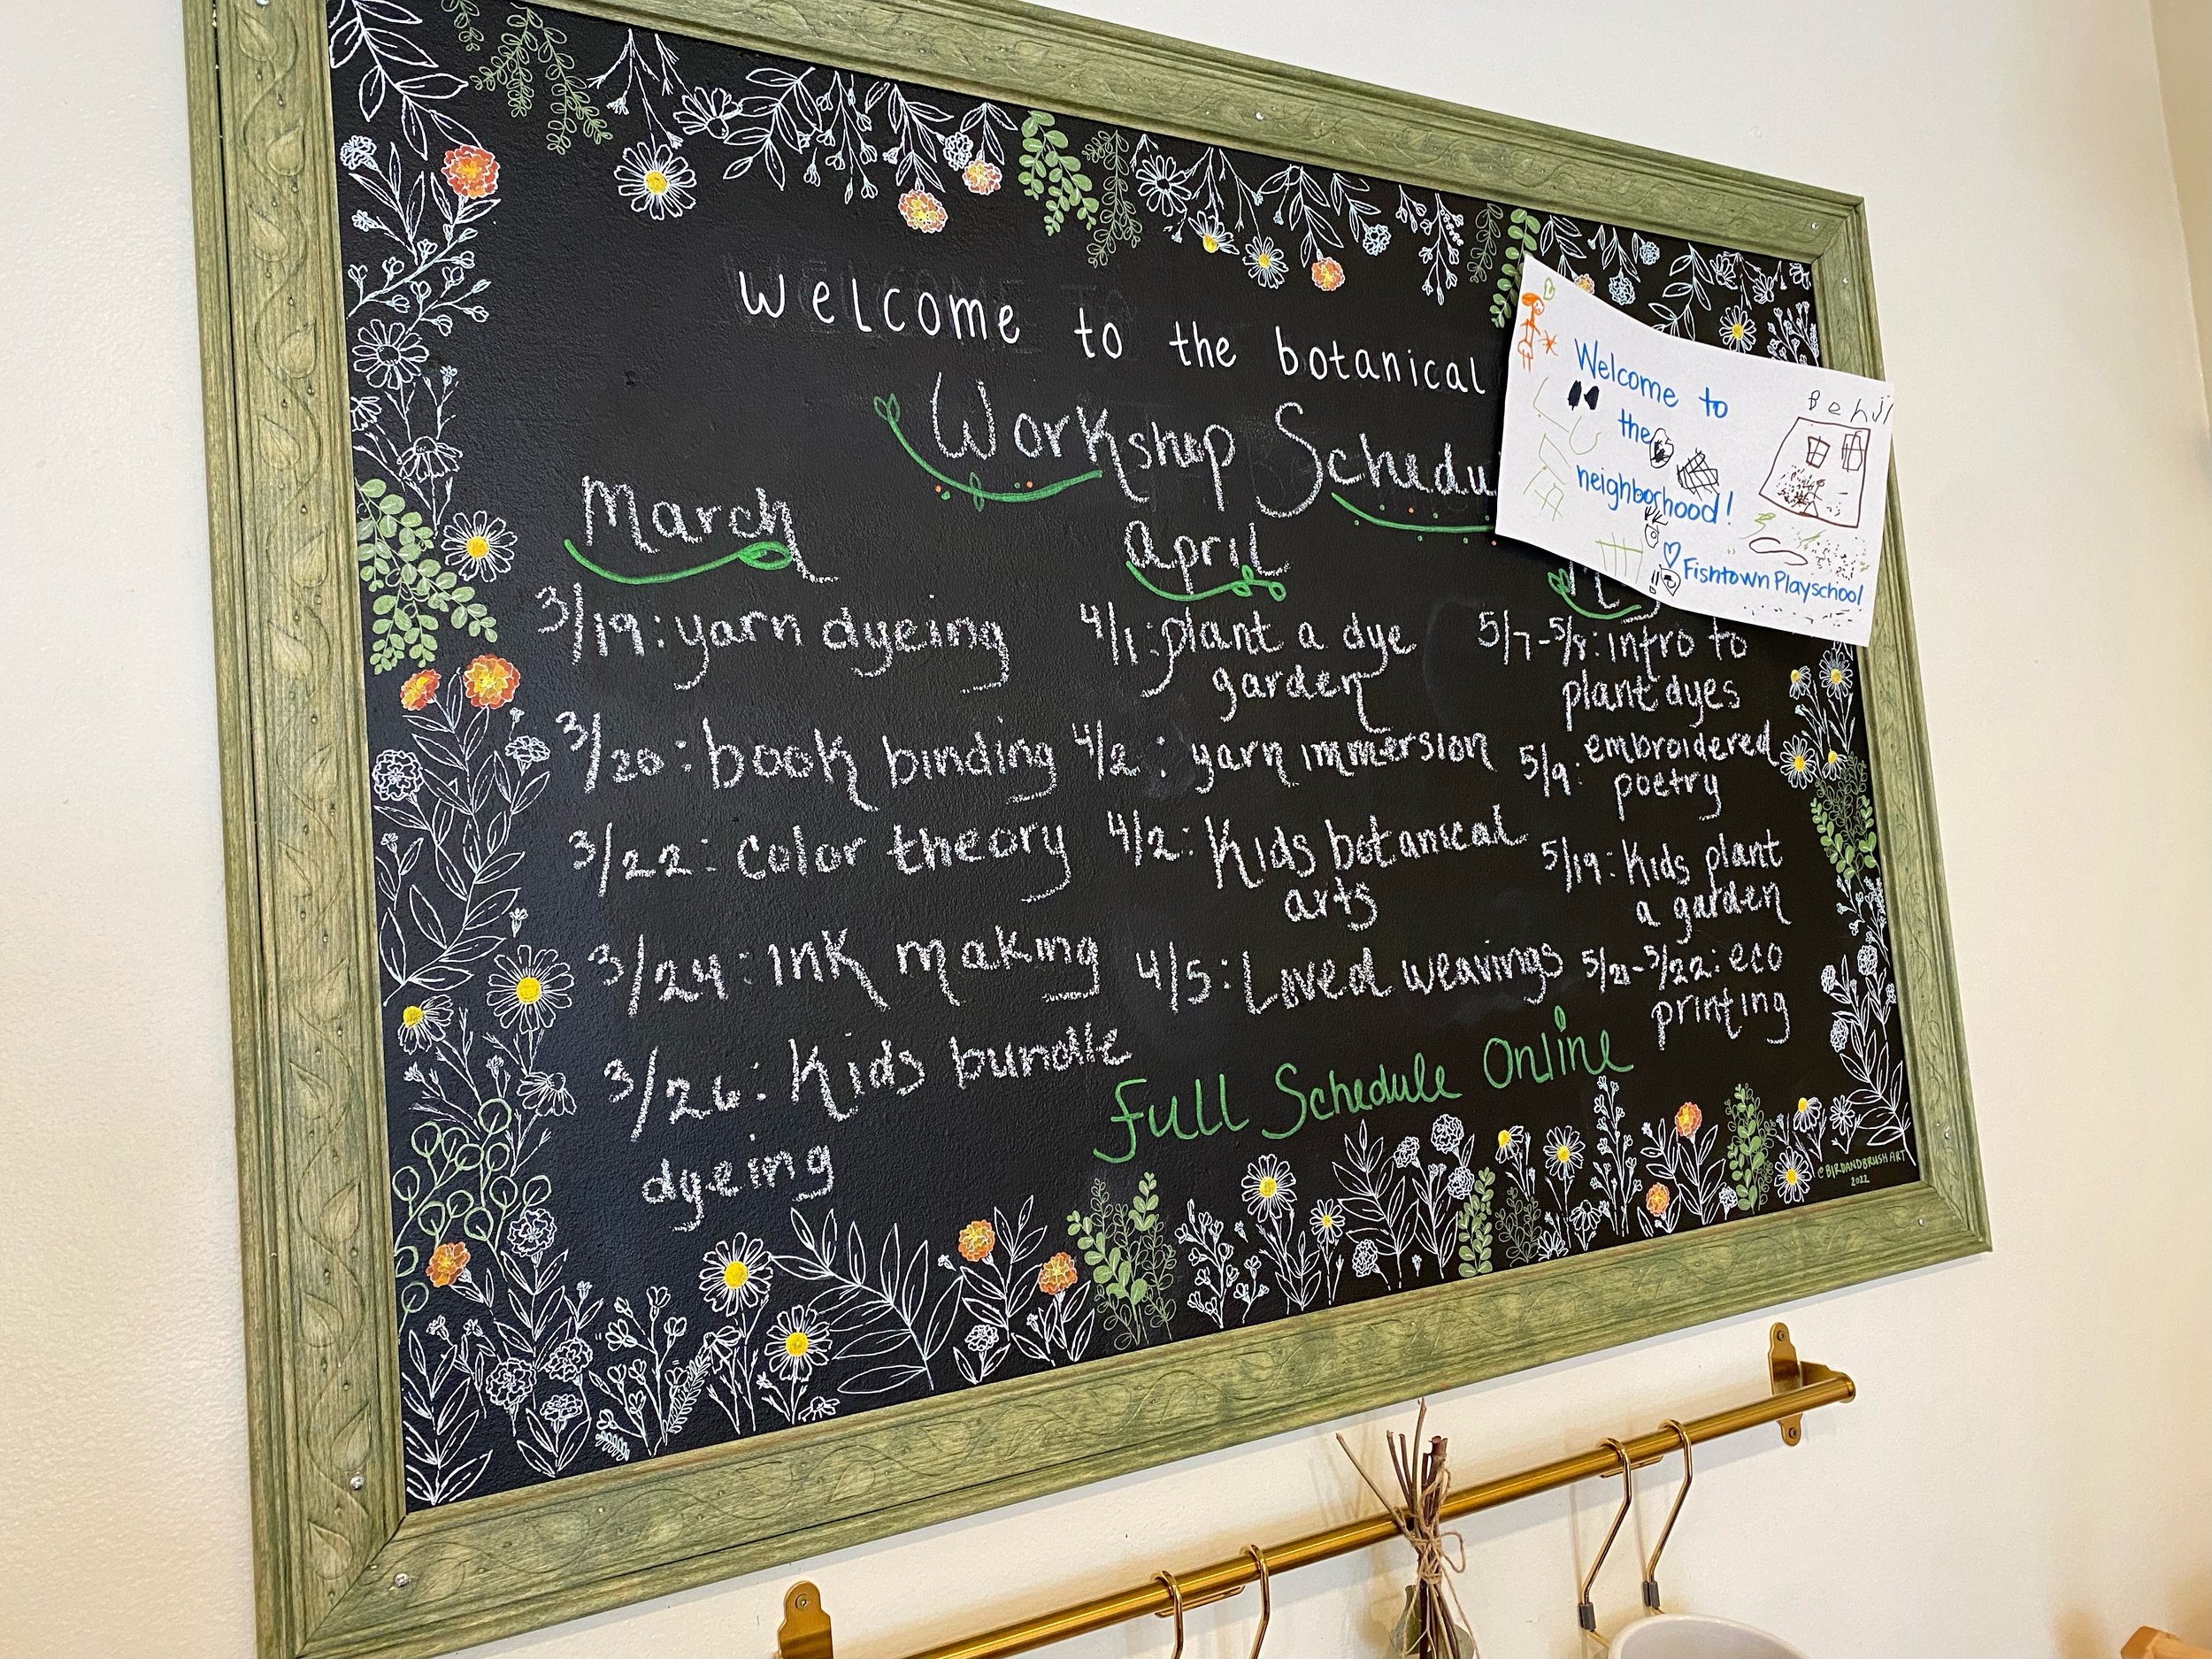 Welcome to the botanical
Workshop Schedu
March
3/19: yarn dyeing
3/20: book binding
3/22: Color theory
3/24: Ink making
3/26: Kids bundle
dyeing
april
4/1: plant a dye
garden
4/2: yarn immersion
4/2: Kids botanical
arts
4/5: Loved weavings
5/7-5/8: intro to
plant dyes
5/9: embroidered
poetry
5/19: Kids plant
a garden
5/21-5/22: eco
printing
Full Schedule Online
©BIRDANDBRUSHART
2022
Welcome to
the
neighborhood!
Fishtown Playschool